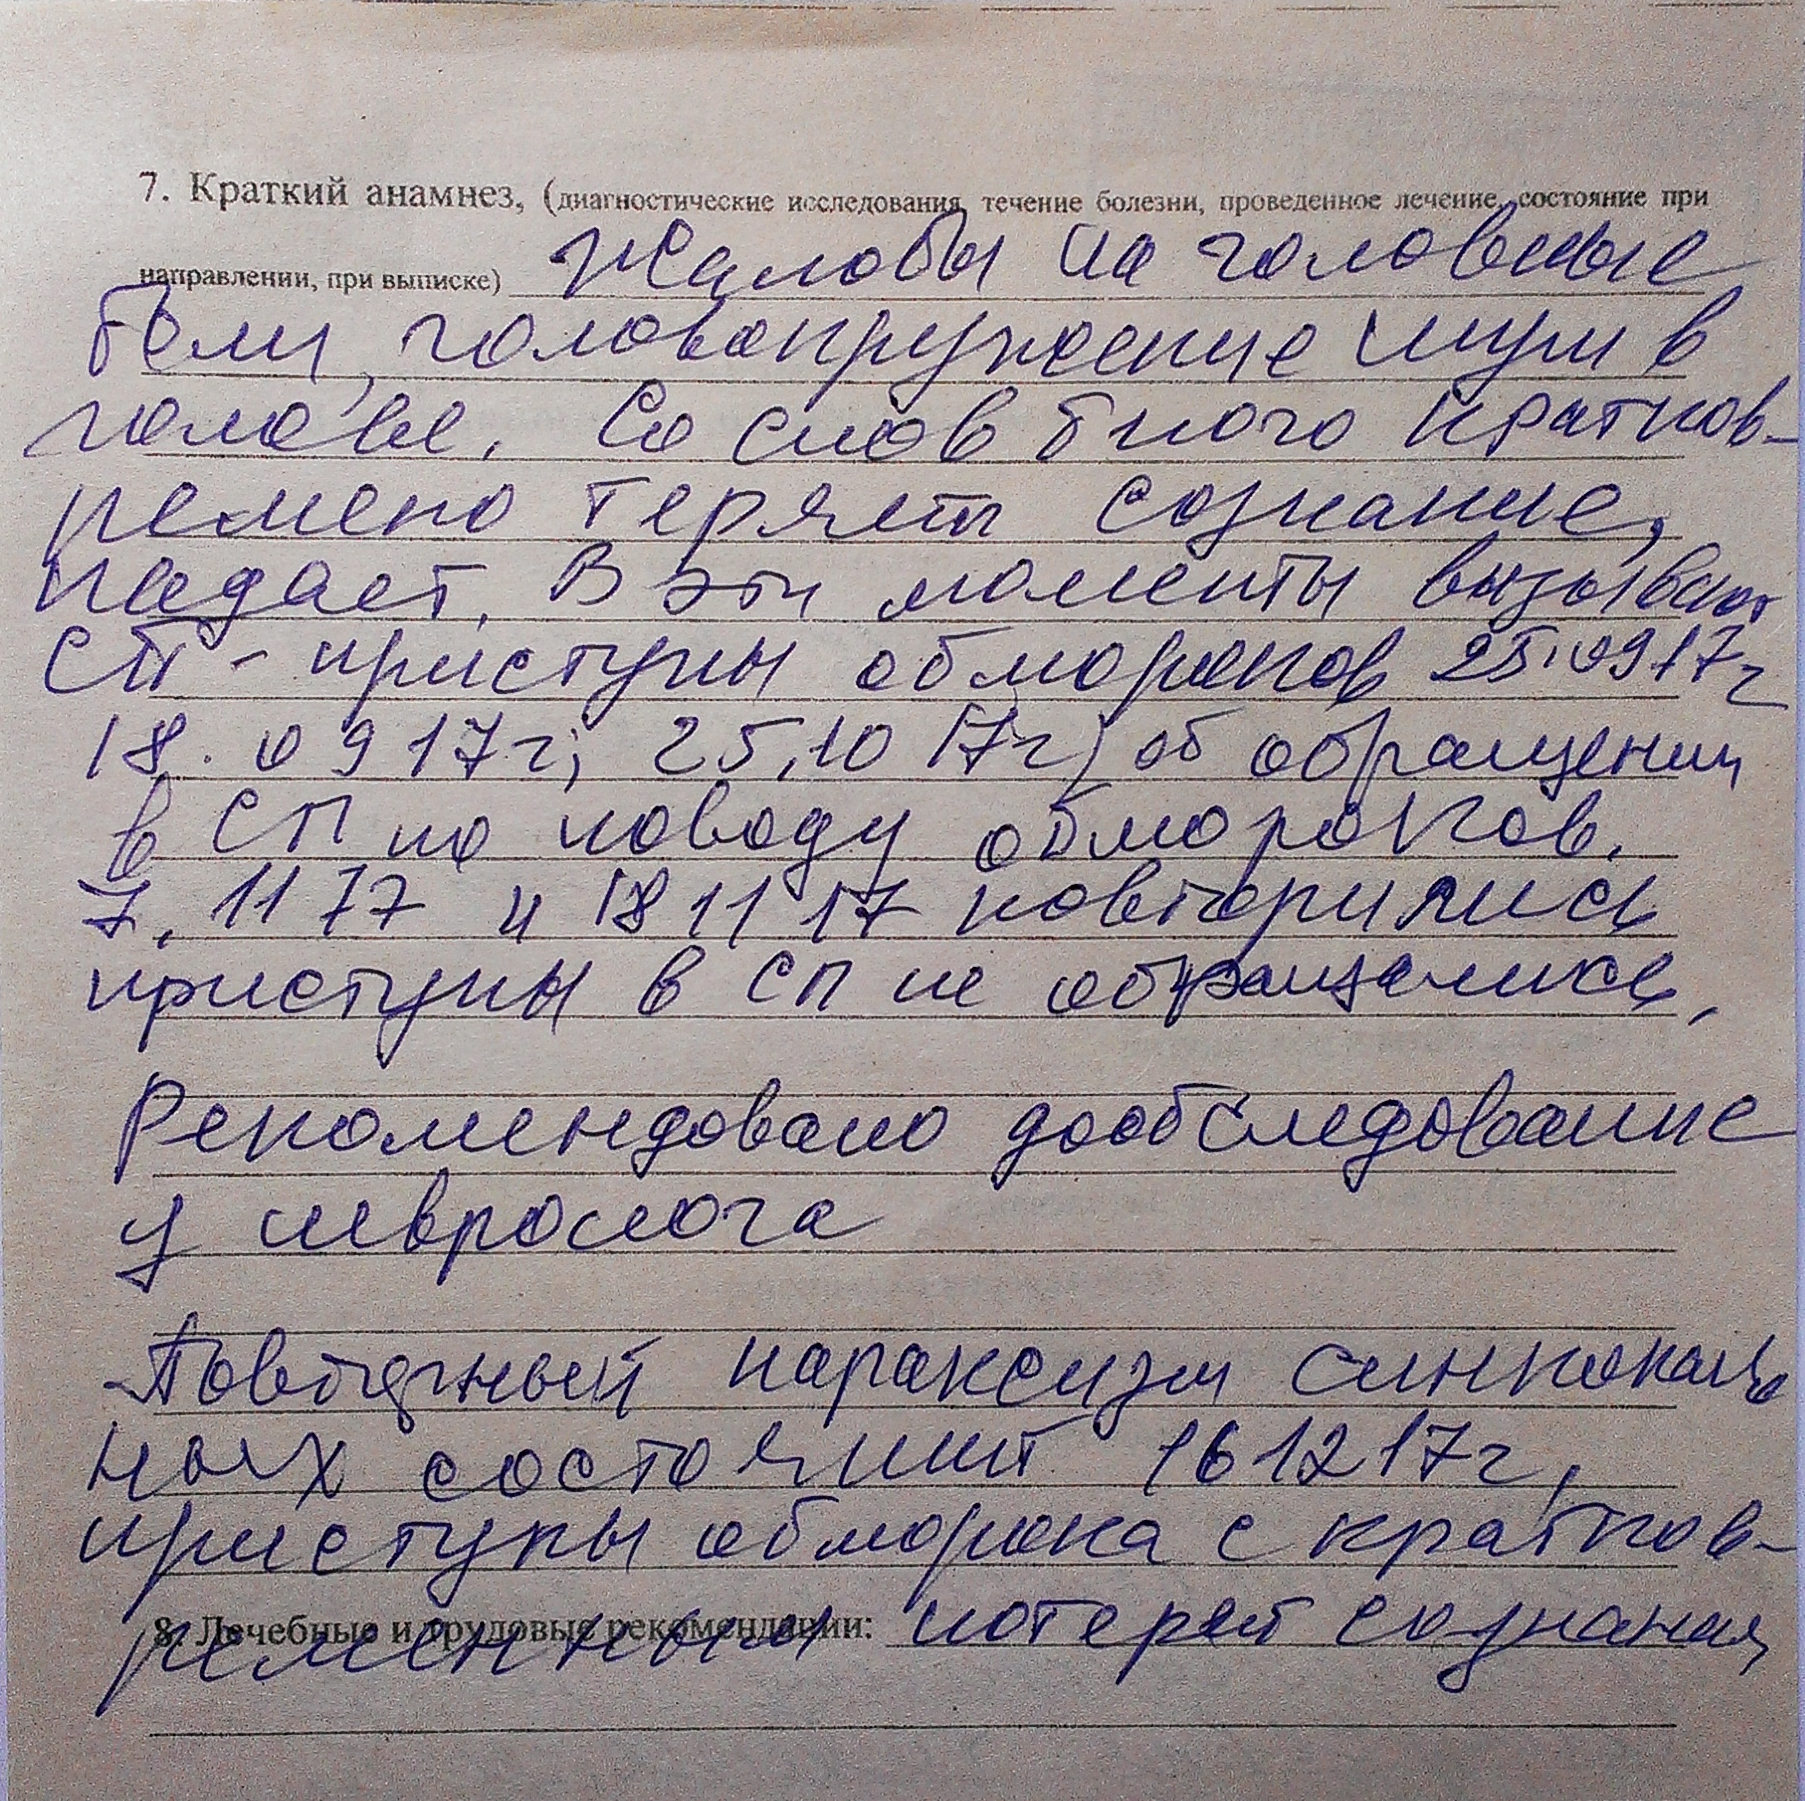 7. Краткий анамнез, (диагностические исследования, течение болезни, проведенное лечение, состояние при
направлении, при выписке) Жалобы на головные
боли, головокружение шум в
голове. Со слов бного кратков-
ремено теряет сознание,
падает. В эти моменты вызывают
СП - приступы обмороков 25.0917г
18.0917г; 25,10 17г) об обращении
в СП по поводу обмороков.
7.11 17 и 18 11 17 повторились
приступы в СП не обращались,
Рекомендовано дообследование
у невролога
Повторный параксизм синкопаль
ных состояний 161217г,
приступы обморока с кратков-
8. Лечебные и трудовые рекомендации:
ременным потерей сознания